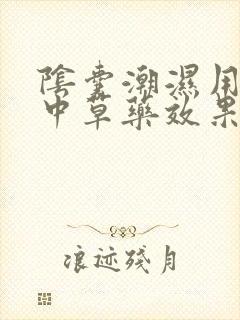 陰囊潮濕用
中草藥效果
浪迹殘月